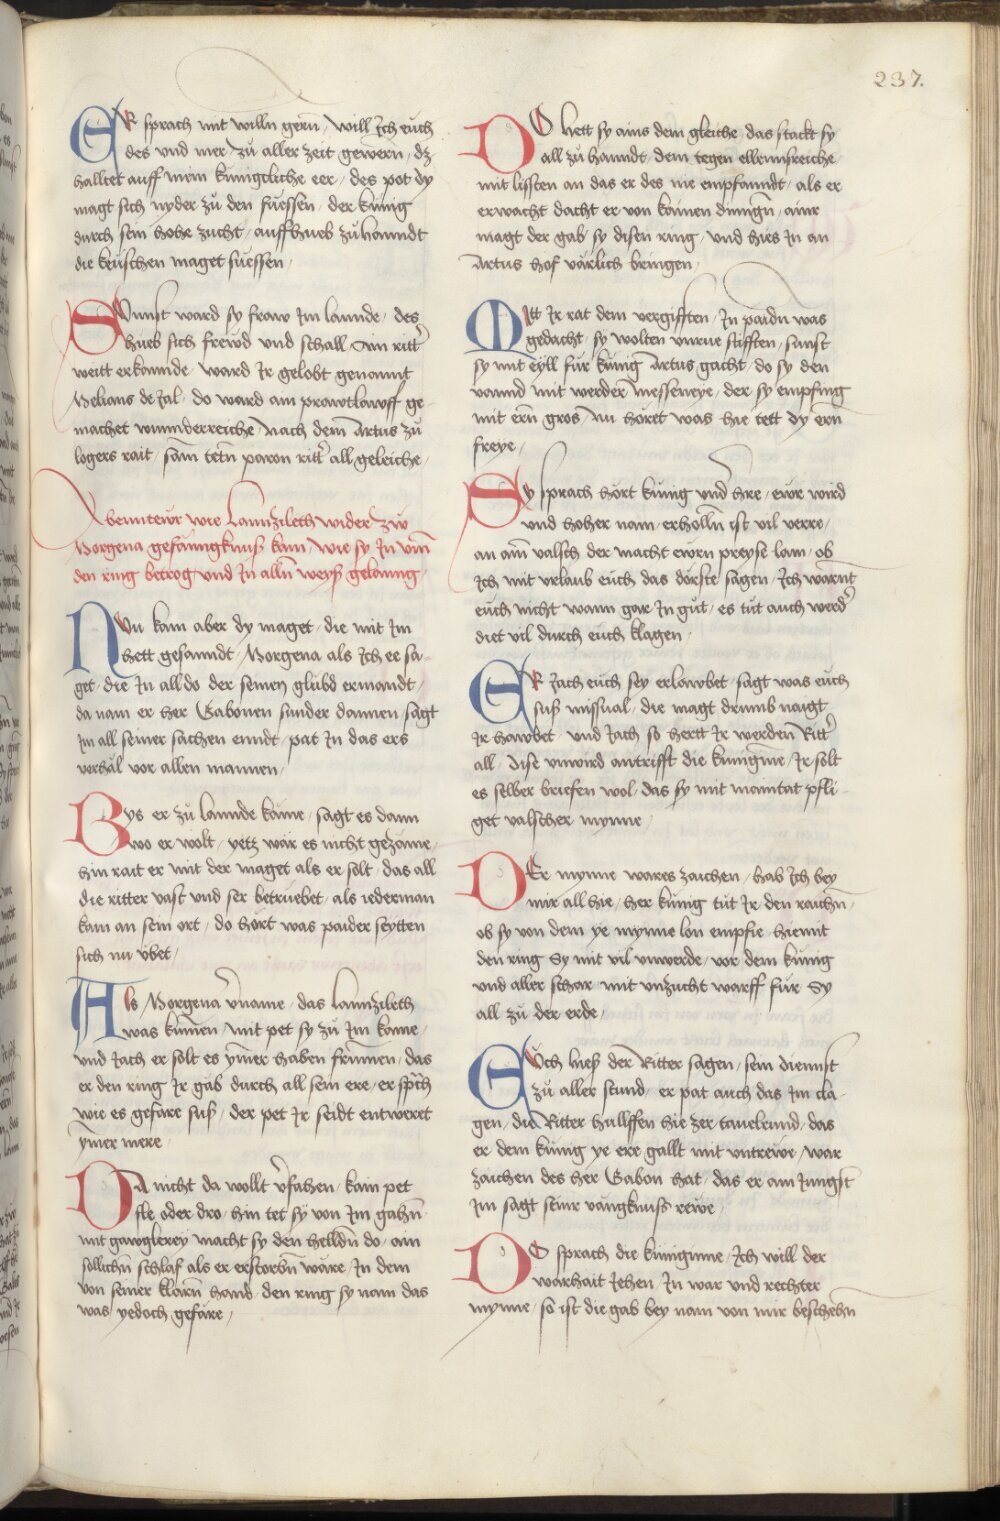 237.
ER sprach mit willn gern / will Ich euch
des und mer / zu aller zeit gewern / dz
halltet auff mein kunigcliche eer / des pot dy
magt sich nyder zu den fuessen / der kunig
durch sein hohe zucht / auffhueb zuhanndt
die keuschen maget suessen /
SUnnst ward sy fraw Im lannde / des
hueb sich frewd und schall / Am rittr
weitt erkannde / ward Ir gelobt genannt
Melians de Ial / do ward ain prawtlawff ge-
machet wunnderreiche / Nach dem Artus zu
logers rait / sam tetn paron rittr all geleiche /
Abenntewr wie Lannzileth wider zw
Morgena gefanngknuss kam / wie sy In vmb
den ring betrog und In alln weys gelanng /
NUn kam aber dy maget / die mit Im
hett gesanndt / Morgena als Ich ee sa-
get / die In all do der seinen glubd ermandt /
da nam er her Gabonen sunder dannen / sagt
Im all seiner sachen ennd / pat In das ers
verhal vor allen mannen /
BYs er zu lannde käme / sagt es dann
wo er wolt / yetz wär es nicht gezäme /
hin rait er mit der maget als er solt / das all
die ritter vast und ser betruebet / als iederman
kam an sein ort / do hört was paider seytten
sich nu vbet /
Als Morgena vername / das lannzileth
was kumen / mit pet sy zu Im kame /
und Iach er solt es ymer haben frumen / das
er den ring Ir gab durch all sein ere / er sprch
wie es gefare suss / der pet Ir seidt entweret
ymer mere /
DA nicht da wollt vfahen / kain pet
fle oder dro / hin tet sy von Im gahn
mit gawglerey macht sy den helldn do / ain
söllichn schlaf als er erstorbn wäre / In dem
von seiner klarn hand / den ring sy nam das
was yedoch gefäre /
DO hett sy ains dem gleiche / das stackt sy
all zu hanndt / dem tegen ellennsreiche /
mit lissten an das er des nie empfanndt / als er
erwacht dacht er von kainen dingn / ainr
magt der gab sy disen ring / und hies In an
Artus hof värlich bringen /
MItt Ir rat dem vergifften / In paidn was
gedacht / sy wolten unrue stifften / sunst
sy mit eyll für kunig Artus gacht / do sy den
vannd mit werder messeneye / der sy empfing
mit ern gros / nu höret was hie tett dy ern
freye /
SY sprach hört kunig und hre / ewr wird
und hoher nam / erholln ist vil verre /
an am valsch der macht ewrn preyse lam / ob
Ich mit vrlaub euch das dörste sagen / Ich warnt
euch nicht wann gar In gut / es tut auch werdr
diet vil durch euch klagen /
ER Iach euch sey erlowbet / sagt was euch
suss missual / die magt drumb naigt
Ir hawbet / und Iach so hertt Ir werden Rittr
all / dise unwird antrifft die kunigine / Ir solt
es selber briefen wol / das sy mit maintat pfli-
get valscher mynne /
DEr mynne wares zaichen / hab Ich bey
mir all hie / her kunig tut Ir den raichn /
ob sy von dem ye mynne lon empfie / hiemit
den ring sy mit vil unwerde / vor dem kunig
und aller schar / mit unzucht warff für sy
all zu der erde /
EUch hiess der Ritter sagen / sein diennst
zu aller stund / er pat auch das Im cla-
gen / die Ritter hullffen hie zer tauelrund / das
er dem kunig ye ere gallt mit untrewe / war
zaichen des her Gabon hat / das er am Iungst
Im sagt seinr vangknuss rewe /
DO sprach die kuniginne / Ich will der
warhait Iehen / In war und rechter
mynne / so ist die gab bey nam von mir beschehn